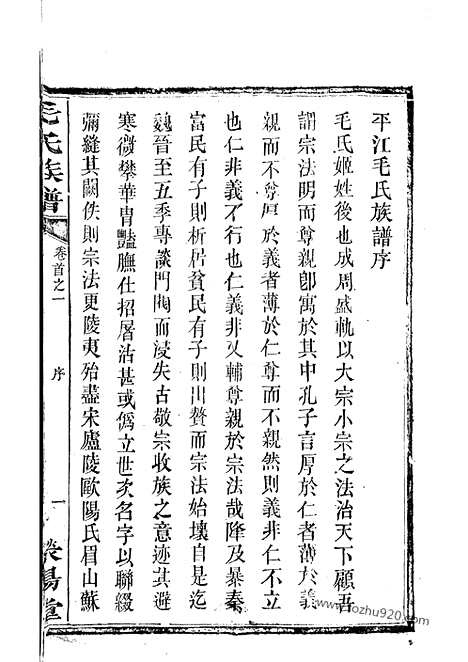 平江毛氏族譜序
毛氏姬姓後也成周盛軌以大宗小宗之法治天下顧吾
謂宗法明而尊親卽寓於其中孔子言厚於仁者薄於義
親而不尊厚於義者薄於仁尊而不親然則義非仁不立
也仁非義不行也仁義非以輔尊親於宗法哉降及暴秦
富民有子則析居貧民有子則出贅而宗法始壞自是迄
魏晉至五季專談門閥而浸失古敬宗收族之意迹其避
寒微攀華胄豔膴仕招屠沽甚或僞立世次名字以聯綴
彌縫其闕佚則宗法更陵夷殆盡宋廬陵歐陽氏眉山蘇
毛氏族譜
卷首之一
序
一
滎陽堂
www.fozhu920.com